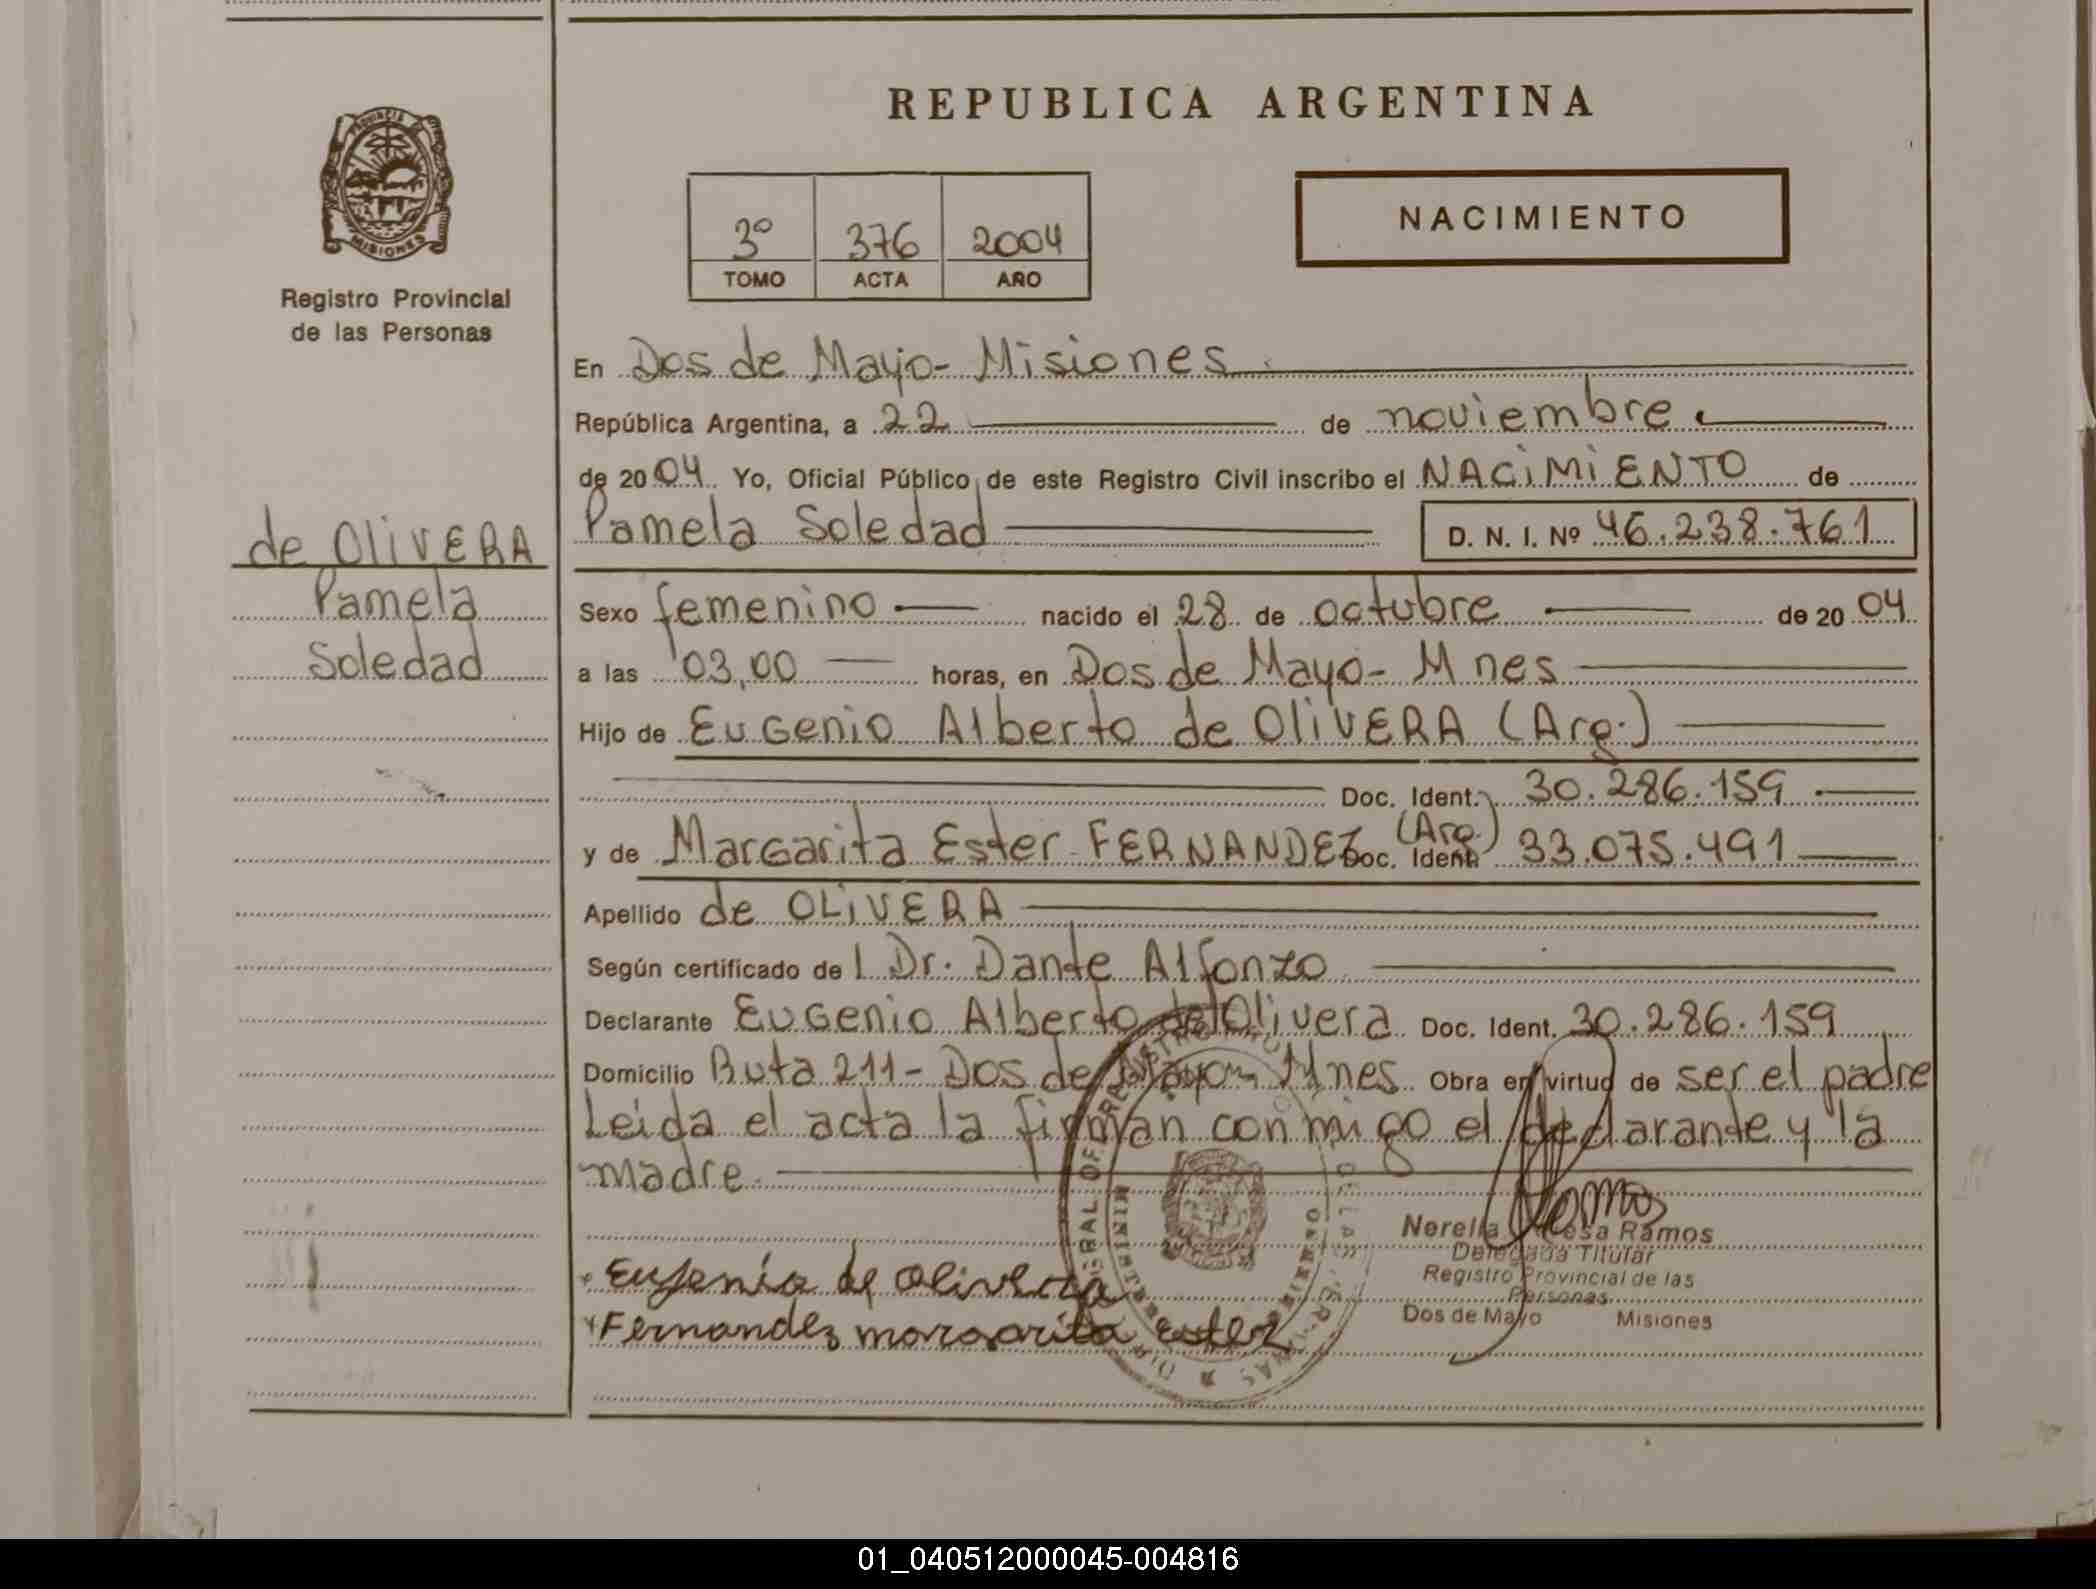 REPUBLICA ARGENTINA
PROVINCIA DE
MISIONES
Registro Provincial
de las Personas
3º 376 2004
TOMO ACTA AÑO
NACIMIENTO
En Dos de Mayo- Misiones
República Argentina, a 22 de noviembre
de 2004 Yo, Oficial Público de este Registro Civil inscribo el NACIMIENTO de
de OLIVERA
Pamela
Soledad
Pamela Soledad D. N. I. Nº 46.238.761
Sexo femenino nacido el 28 de octubre de 2004
a las 03,00 horas, en Dos de Mayo- Mnes
Hijo de Eugenio Alberto de OLIVERA (Arg.)
Doc. Ident. 30.286.159
y de Margarita Ester FERNANDEZ (Arg.) Doc. Ident. 33.075.491
Apellido de OLIVERA
Según certificado del Dr. Dante Alfonzo
Declarante Eugenio Alberto de Olivera Doc. Ident. 30.286.159
Domicilio Ruta 211- Dos de Mayo- Mnes Obra en virtud de ser el padre
Leida el acta la firman conmigo el declarante y la
madre.
Nerella Ramos
Delegada Titular
Registro Provincial de las
Personas
Dos de Mayo Misiones
Eugenio de Olivera
Fernandez margarita ester
01_040512000045-004816